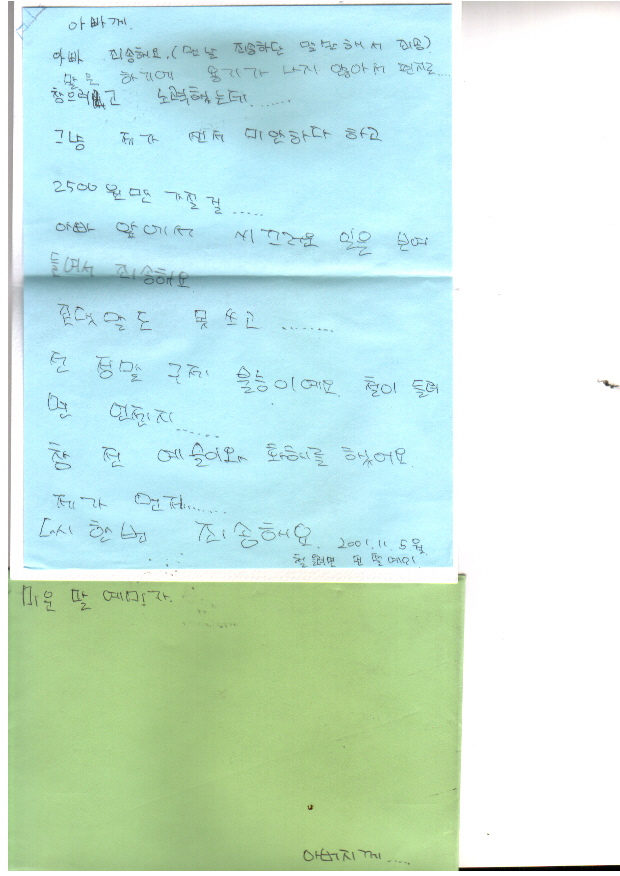 아빠께.
아빠 죄송해요.(맨날 죄송하단 말만 해서 죄송)
말은 하기에 용기가 나지 않아서 편지로...
참으려고 노력했는데........
그냥 제가 먼저 미안하다 하고
2500원만 가질 걸.....
아빠 앞에서 시끄러운 일을 보여
들여서 죄송해요.
존댓말도 못 쓰고........
전 정말 구제 불능이예요. 철이 들려
면 언젠지.....
참 전 예슬이와 화해를 했어요.
제가 먼저......
다시 한번 죄송해요. 2001.11.5월
철 들려면 먼 딸 예미
미운 딸 예미가.
아버지께....